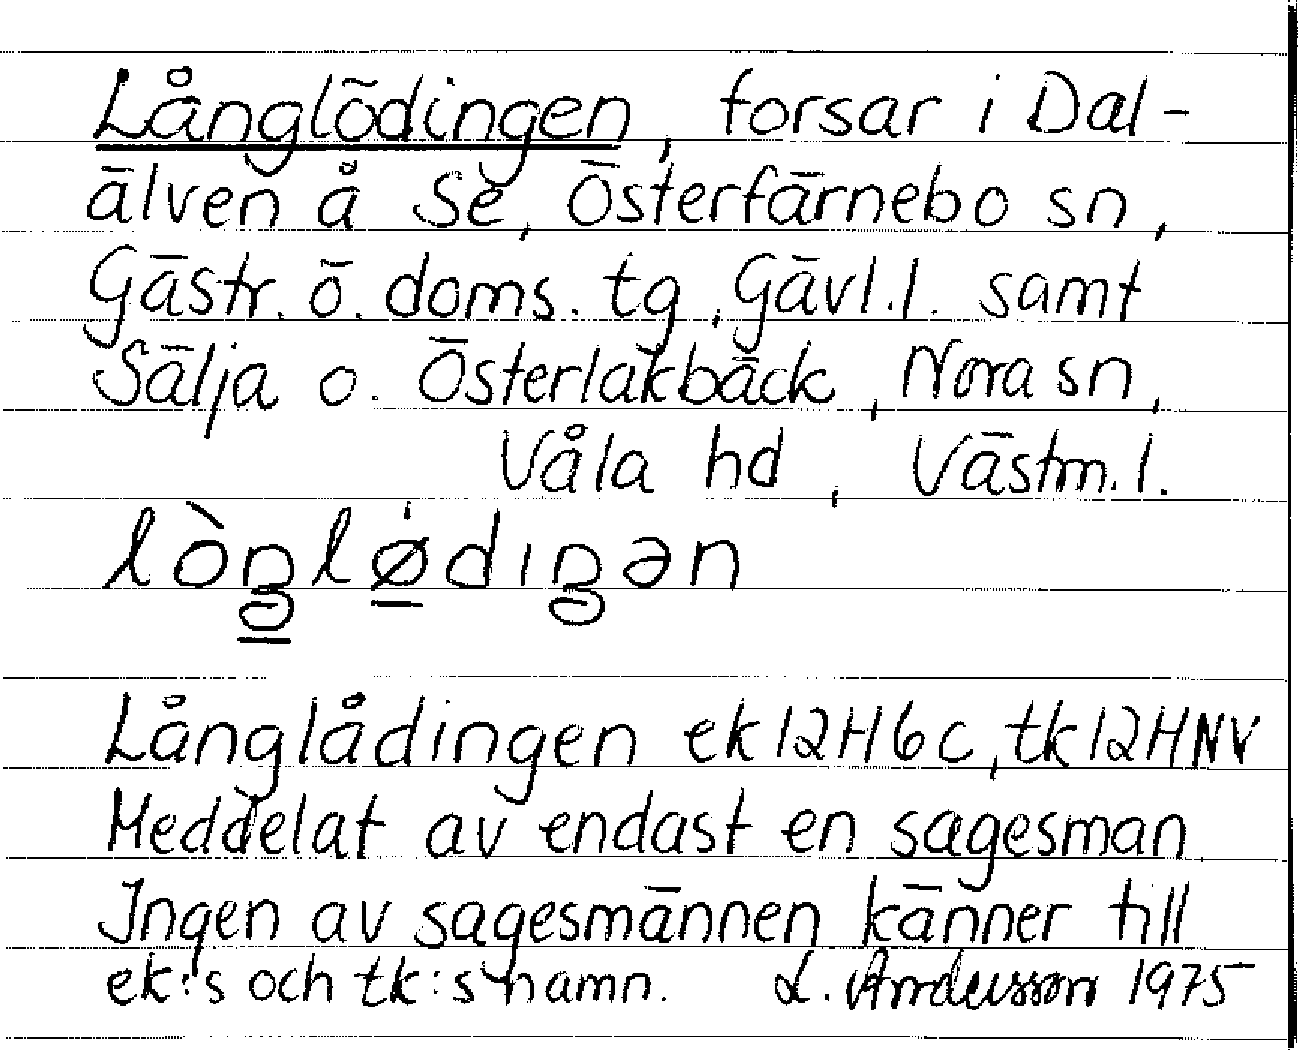 Långlödingen, forsar i Dal-
älven å Se, Österfärnebo sn,
Gästr. ö. doms. tg, Gävl.l. samt
Sälja o. Österlakbäck, Nora sn,
Våla hd, Västm.l.
lòŋlødıŋən
Långlådingen ek12H6c, tk12HNV
Meddelat av endast en sagesman
Ingen av sagesmännen känner till
ek:s och tk:s namn. L. Andersson 1975